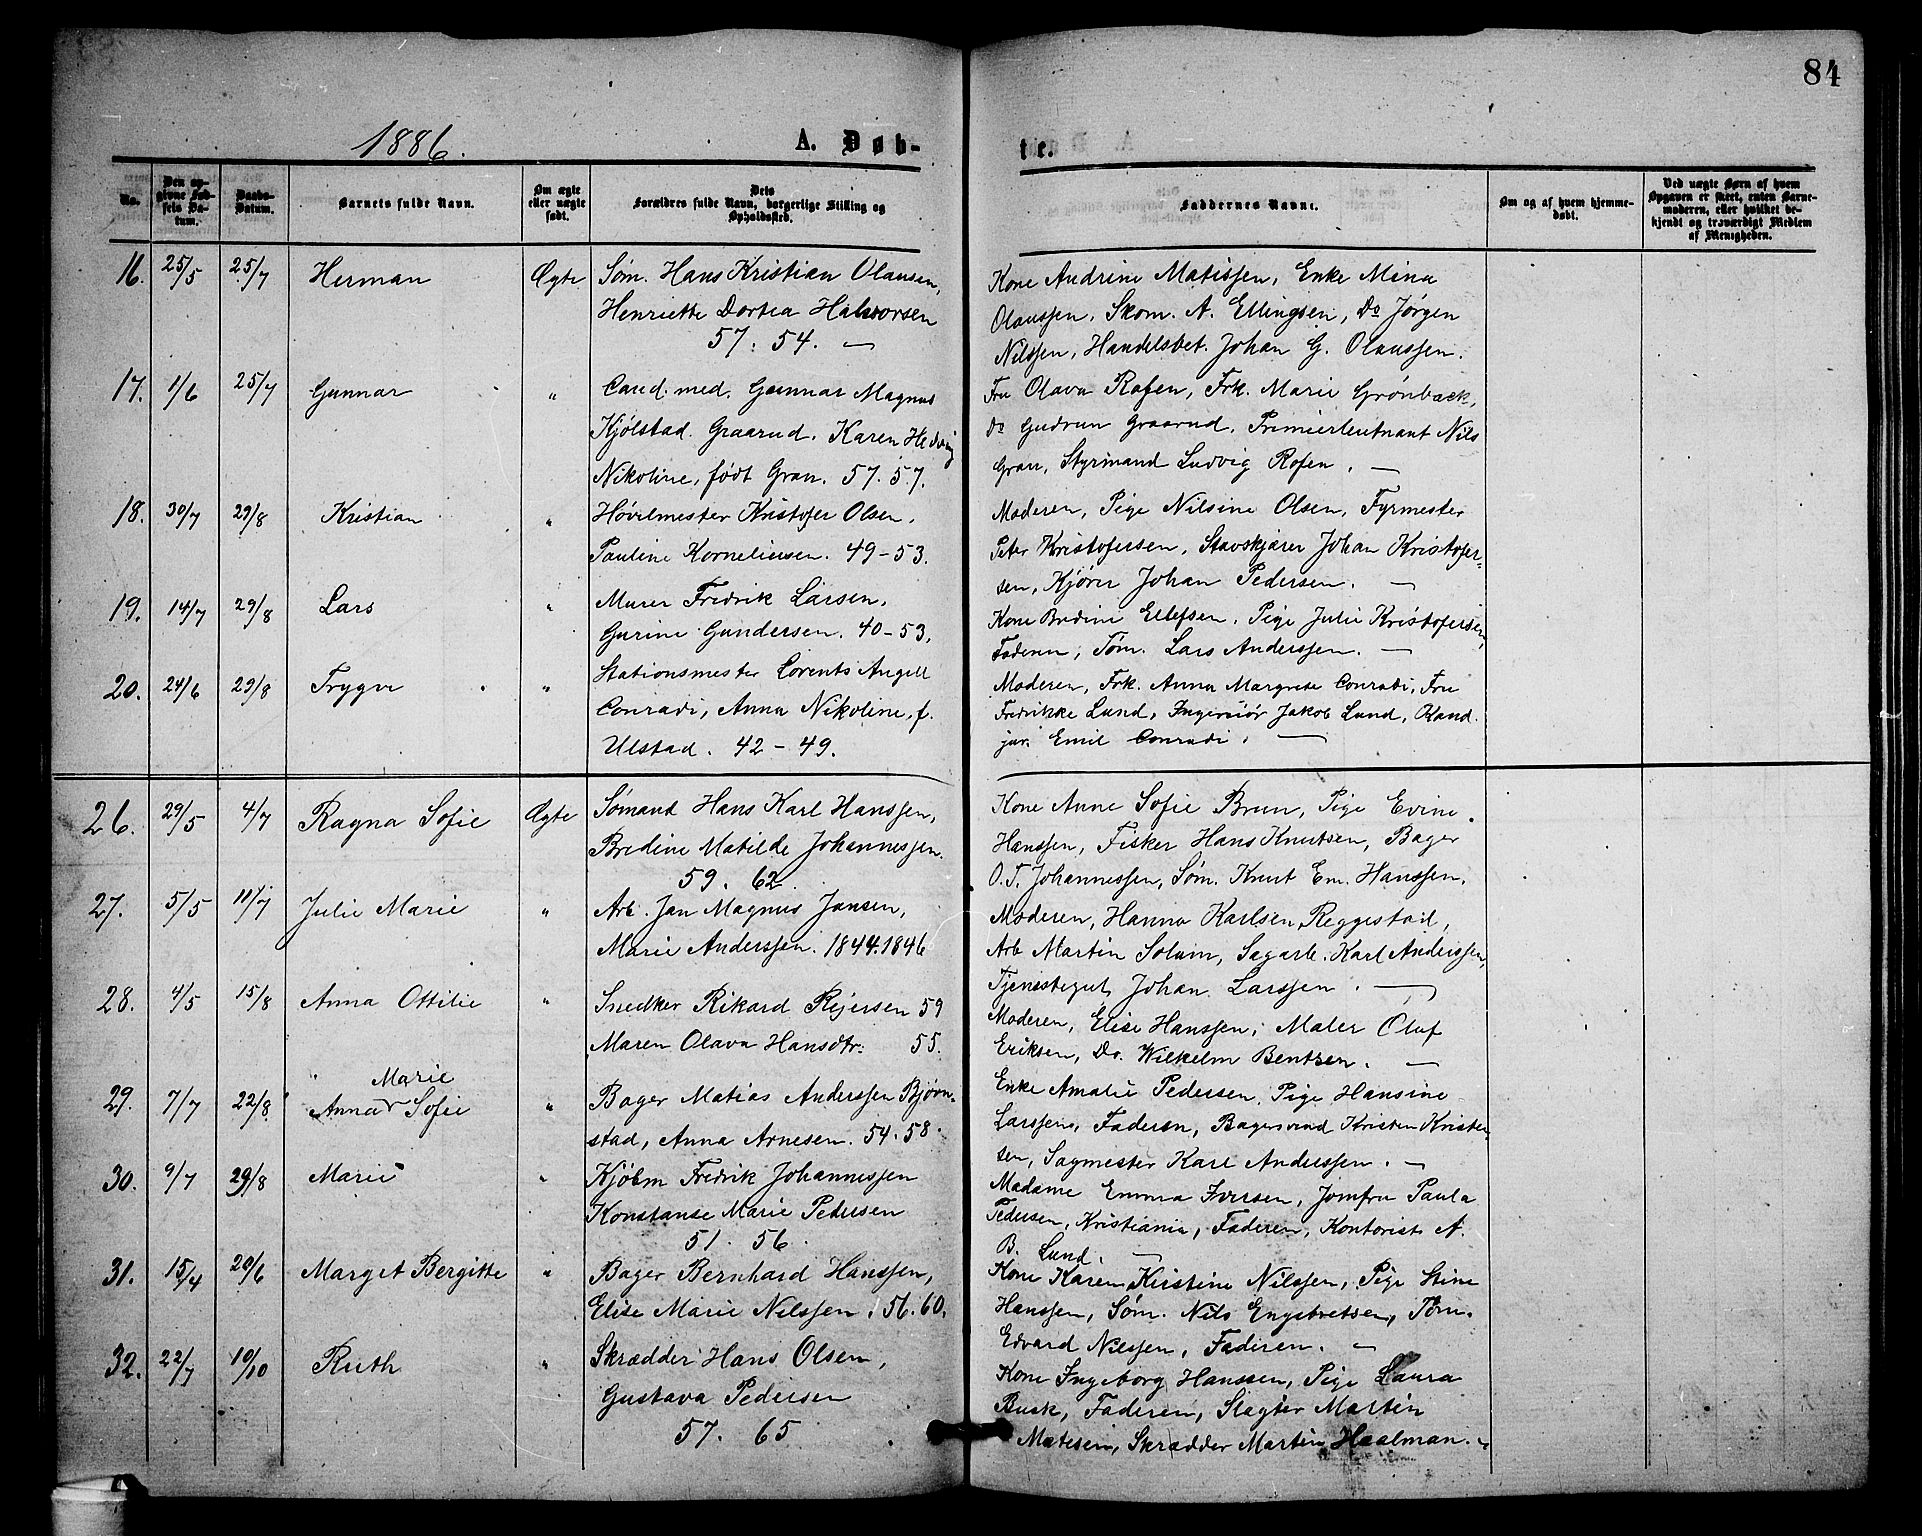 84
1886.
A. Døb-
te.
No.
Den opgivne Fødsels Datum.
Daabs-Datum.
Barnets fulde Navn.
Om ægte eller uægte født.
Dets Forældres fulde Navn, borgerlige Stilling og Opholdssted.
Faddernes Navne.
Om og af hvem hjemmedøbt.
Ved uægte Børn af hvem Opgaven er skeet, enten Barnemoderen, eller hvilket bekjendt og troværdigt Medlem af Menigheden.
16. 25/5 25/7 Herman Ægte Søm. Hans Kristian Olausen,
Henriette Dortea Halvorsen
57. 54. —
Kone Andrine Matissen, Enke Mina
Olaussen, Skom. A. Ellingsen, Do Jørgen
Nilssen, Handelsbet. Johan G. Olaussen.
17. 1/6 25/7 Gunnar " Cand. med. Gunnar Magnus
Kjølstad Graarud. Karen Hedvig
Nikoline, født Gran. 57. 57.
Fru Olava Rofen, Frk. Marie Grønbæck,
Do Gudrun Graarud, Premierleutnant Nils
Gran, Styrmand Ludvig Rofen. —
18. 30/7 29/8 Kristian " Høvelmester Kristofer Olsen.
Pauline Korneliussen. 49-53.
Moderen, Pige Nilsine Olsen, Fyrmester
Peter Kristofersen, Stavskjærer Johan Kristofer-
sen, Kjører Johan Pedersen. —
19. 14/7 29/8 Lars " Murer Fredrik Larsen.
Gurine Gundersen. 40-53.
Kone Bredine Ellefsen, Pige Julie Kristofersen,
Faderen, Tøm. Lars Anderssen. —
20. 24/6 29/8 Trygve " Stationsmester Lorents Angell
Conradi, Anna Nikoline, f.
Ulstad. 42-49.
Moderen, Frk. Anna Margrete Conradi, Fru
Fredrikke Lund, Ingeniør Jakob Lund, Kand.
jur. Emil Conradi. —
26. 29/5 4/7 Ragna Sofie Ægte Sømand Hans Karl Hanssen,
Bredine Matilde Johannessen.
59. 62.
Kone Anne Sofie Brun, Pige Evine
Hanssen, Fisker Hans Knutsen, Bager
O. T. Johannessen, Søm. Knut Em. Hanssen.
27. 5/5 11/7 Julie Marie " Arb. Jan Magnus Jansen,
Marie Anderssen. 1844. 1846
Moderen, Hanna Karlsen Reggestad,
Arb Martin Solum, Sagarb. Karl Anderssen,
Tjenestegut Johan Larssen. —
28. 4/5 15/8 Anna Ottilie " Snedker Rikard Rejersen 59
Maren Olava Hansdtr: 55.
Moderen, Elise Hanssen, Maler Oluf
Eriksen, Do. Wilkelm Bentsen. —
29. 7/7 22/8 Anna Marie Sofie " Bager Matias Anderssen Bjørn-
stad, Anna Arnesen. 54. 58.
Enke Amalie Pedersen, Pige Hansine
Larssen, Faderen, Bagersvend Kristen Krister-
sen, Sagmester Karl Anderssen. —
30. 9/7 29/8 Marie " Kjøbm Fredrik Johannessen
Konstanse Marie Pedersen
51. 56.
Madame Emma Iversen, Jomfru Paula
Pedersen, Kristiania, Faderen, Kontorist A.
B. Lund. —
31. 15/4 20/6 Margit Bergitte " Bager Bernhard Hanssen,
Elise Marie Nilssen. 56. 60.
Kone Karen Kristine Nilssen, Pige Stine
Hanssen, Søm. Nils Engebretsen, Tøm.
Edvard Nilssen, Faderen. —
32. 22/7 10/10 Ruth " Skrædder Hans Olsen,
Gustava Pedersen
57. 65
Kone Ingeborg Hanssen, Pige Laura
Busk, Faderen, Slagter Martin
Matisen, Skrædder Martin Haalman. —